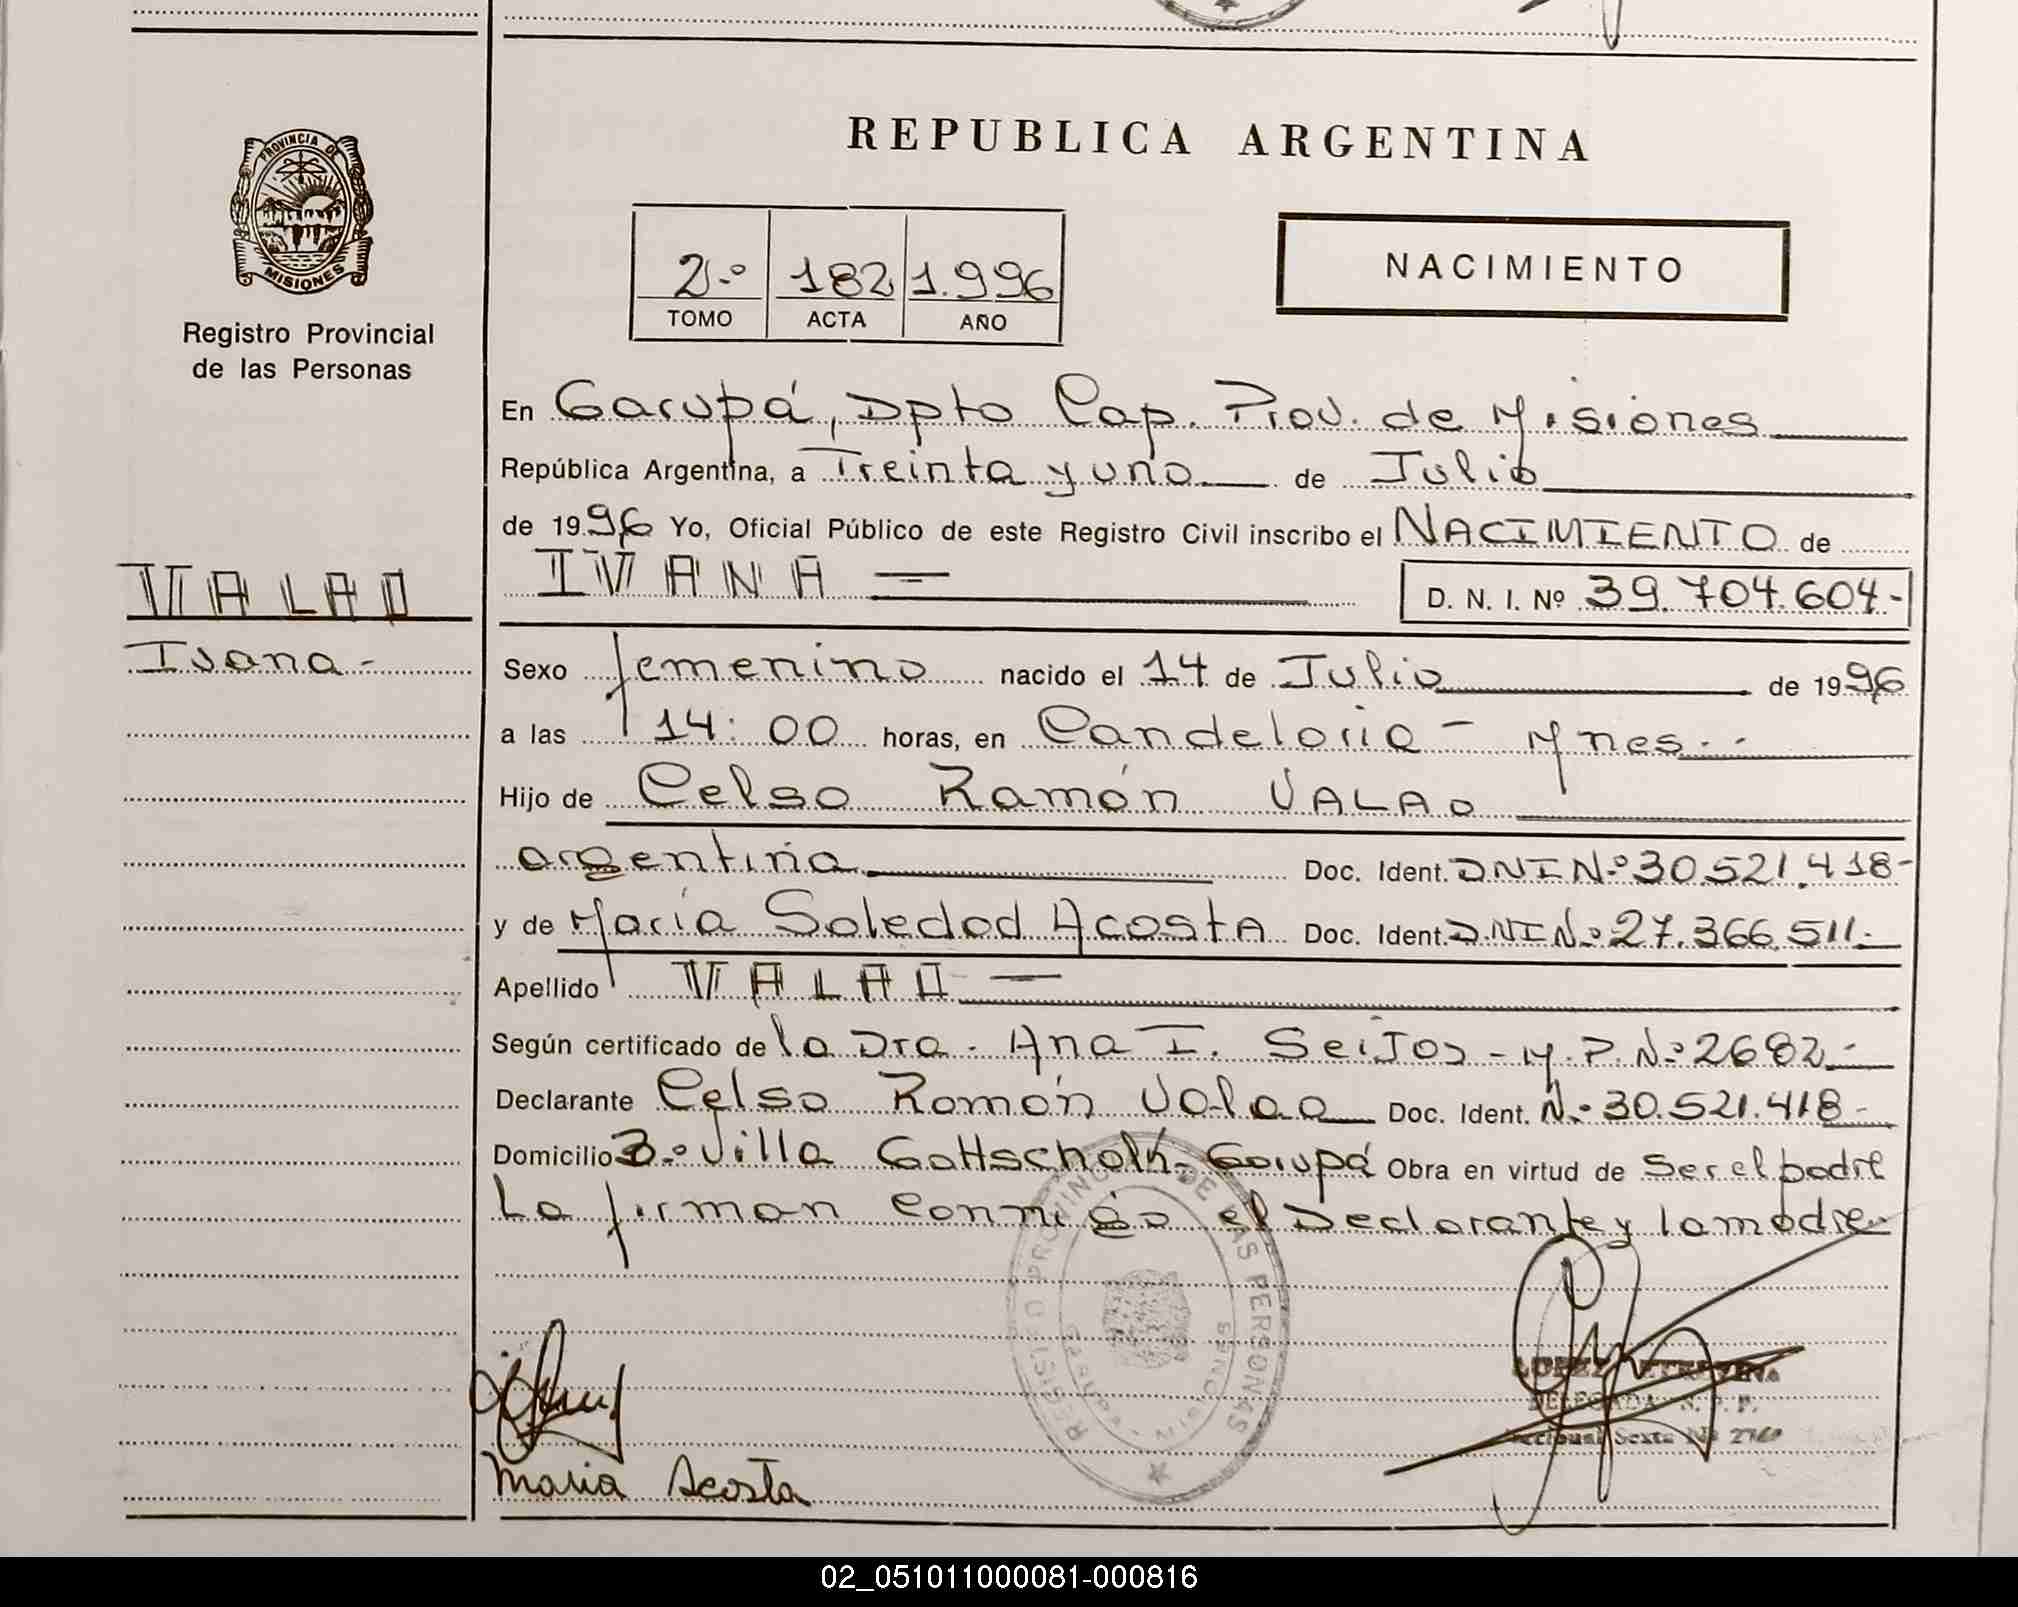 REPUBLICA ARGENTINA
PROVINCIA DE
MISIONES
Registro Provincial
de las Personas
2º 182 1.996
TOMO ACTA AÑO
NACIMIENTO
En Garupá, Dpto Cap. Prov. de Misiones
República Argentina, a Treinta y uno de Julio
de 1996 Yo, Oficial Público de este Registro Civil inscribo el NACIMIENTO de
VALAO
IVANA = D. N. I. Nº 39.704.604-
Ivana-
Sexo femenino nacido el 14 de Julio de 1996
a las 14:00 horas, en Candelaria - Mnes.-
Hijo de Celso Ramón VALAO
argentina Doc. Ident. DNI Nº 30.521.418-
y de María Soledad Acosta Doc. Ident. DNI Nº 27.366.511.-
Apellido VALAO -
Según certificado de la Dra. Ana I. Seijos - M.P. Nº 2682.-
Declarante Celso Ramón Valao Doc. Ident. Nº 30.521.418-
Domicilio Bº Villa Gottschalk-Garupá Obra en virtud de ser el padre
La firman conmigo el Declarante y la madre.
REGISTRO PROVINCIAL DE LAS PERSONAS
MISIONES
DELEGADA
Seccional Sexta Nº
Maria Acosta
02_051011000081-000816